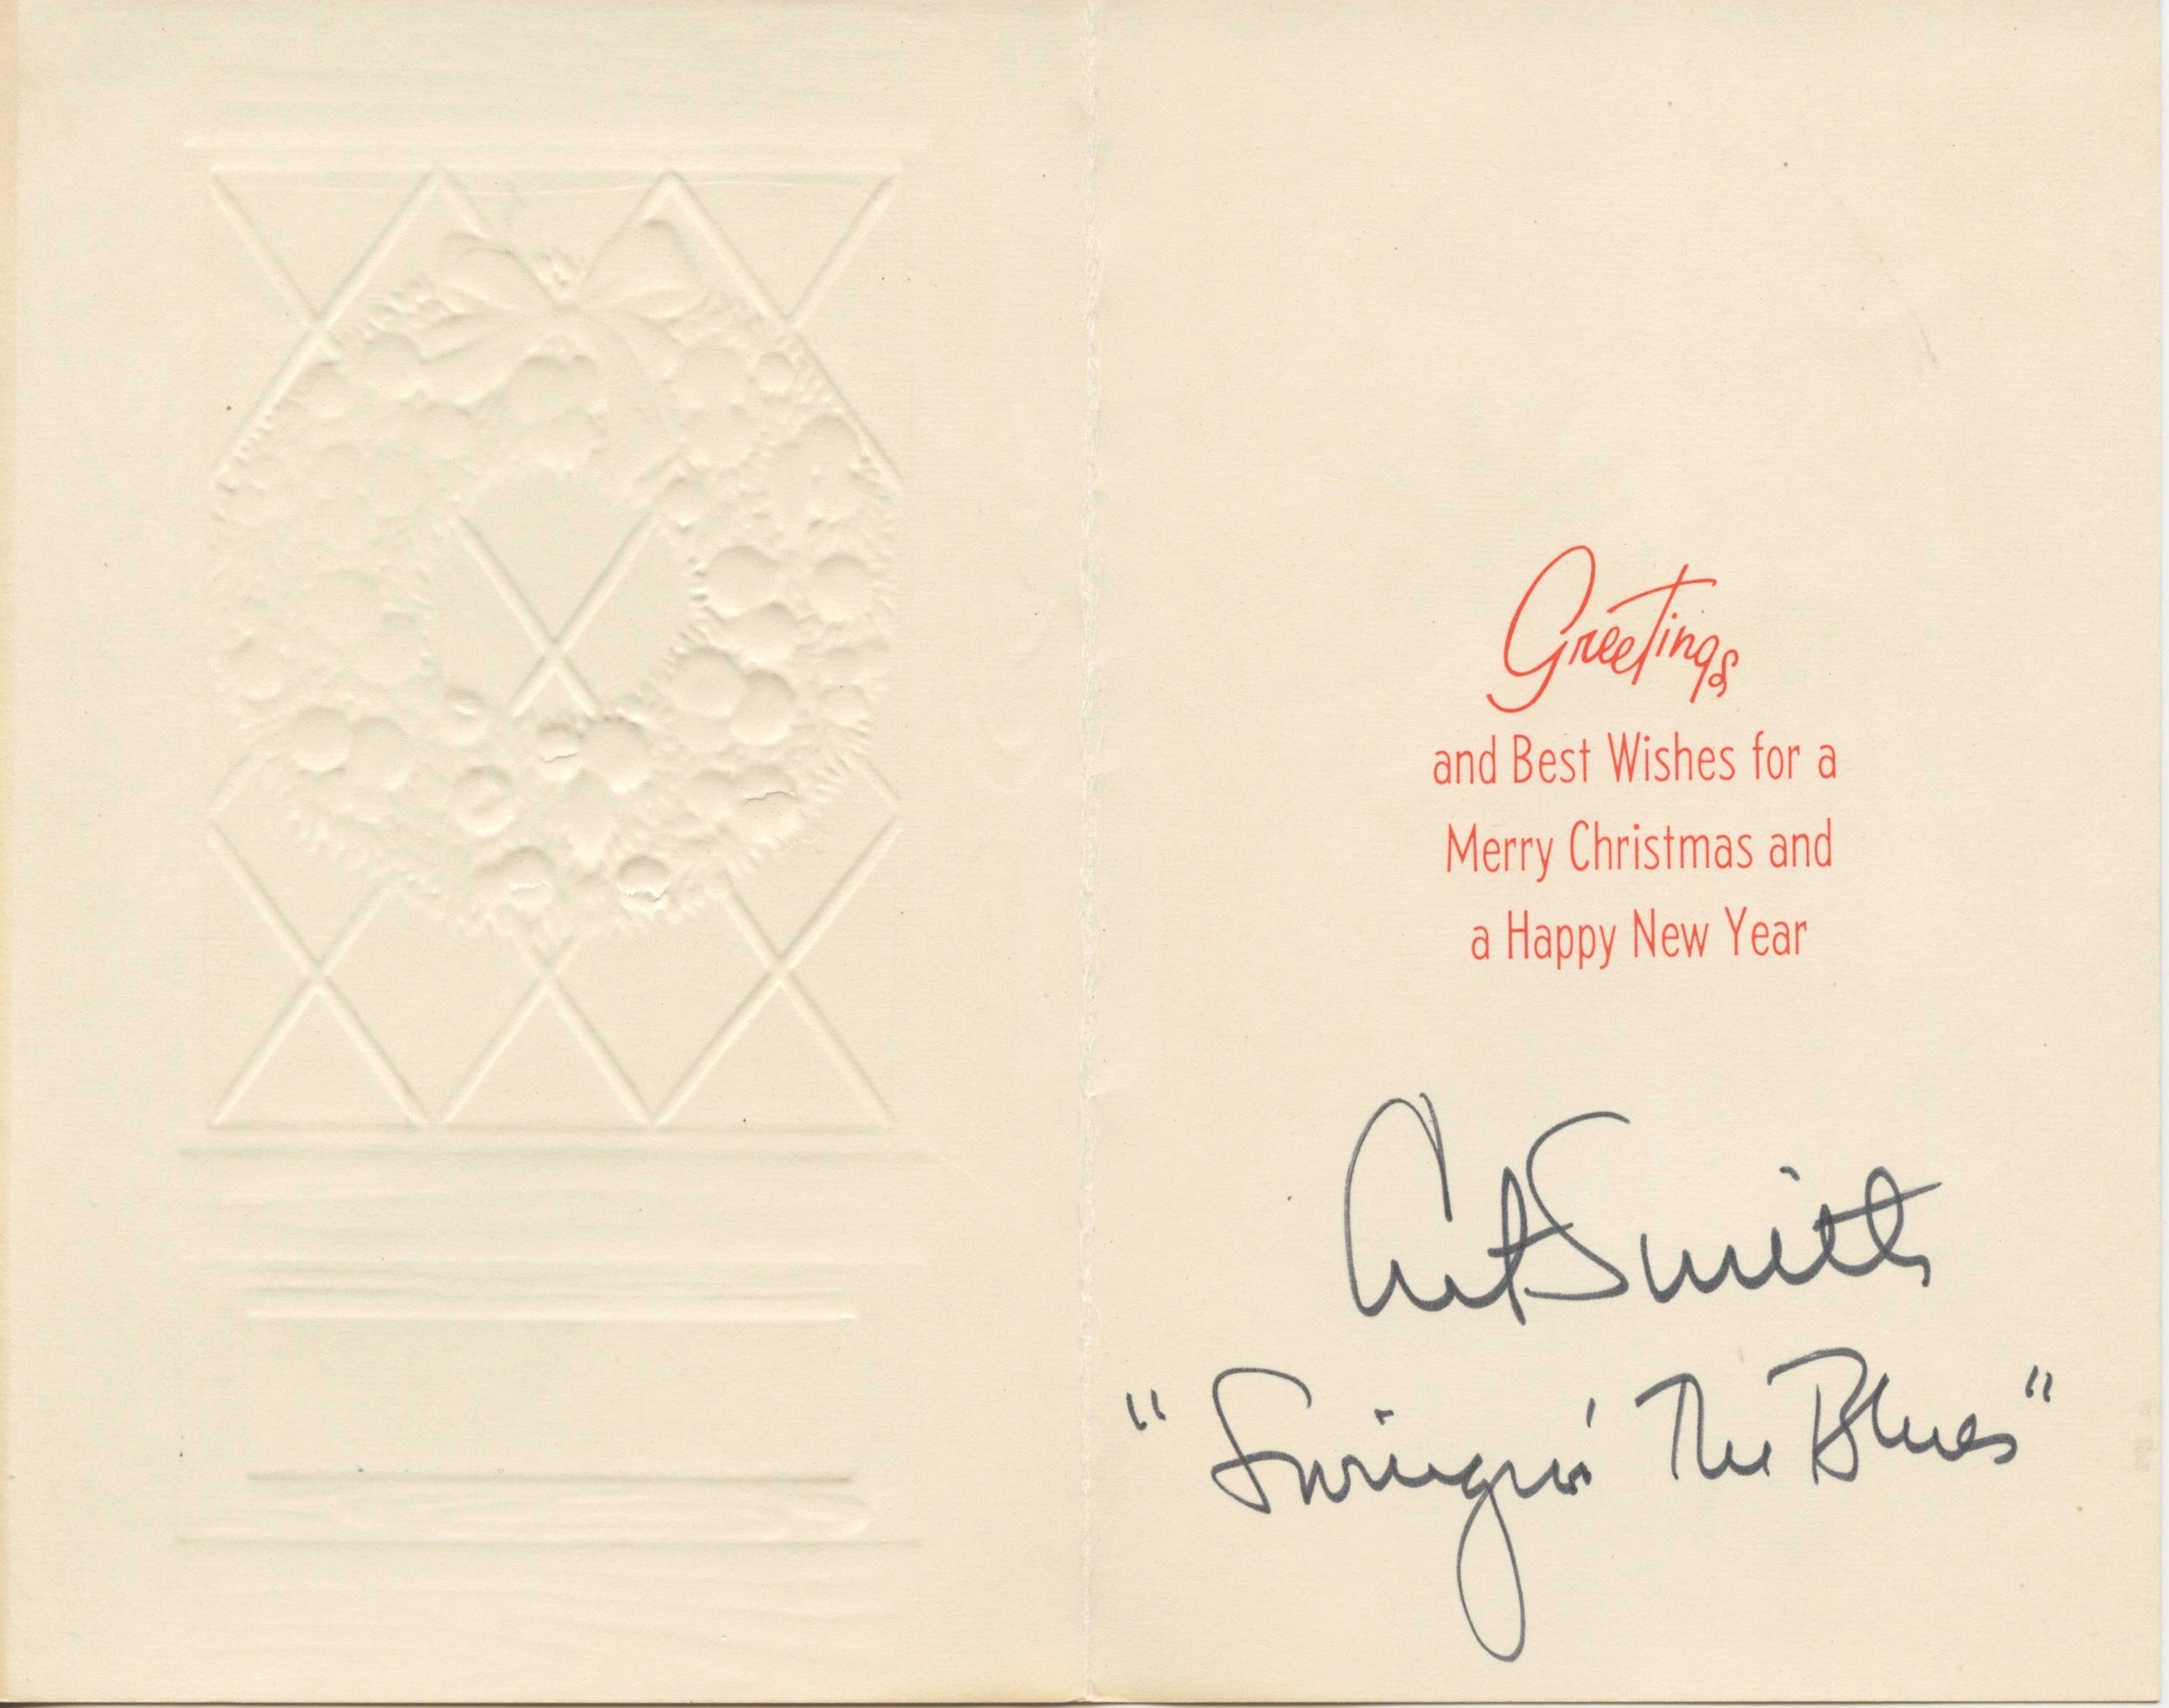 Greetings
and Best Wishes for a
Merry Christmas and
a Happy New Year
Art Smith
"Swingin' The Blues"